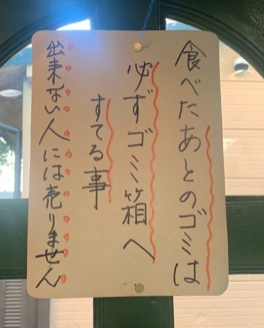 食べたあとのゴミは
必ずゴミ箱へ
すてる事
出来ない人には売りません